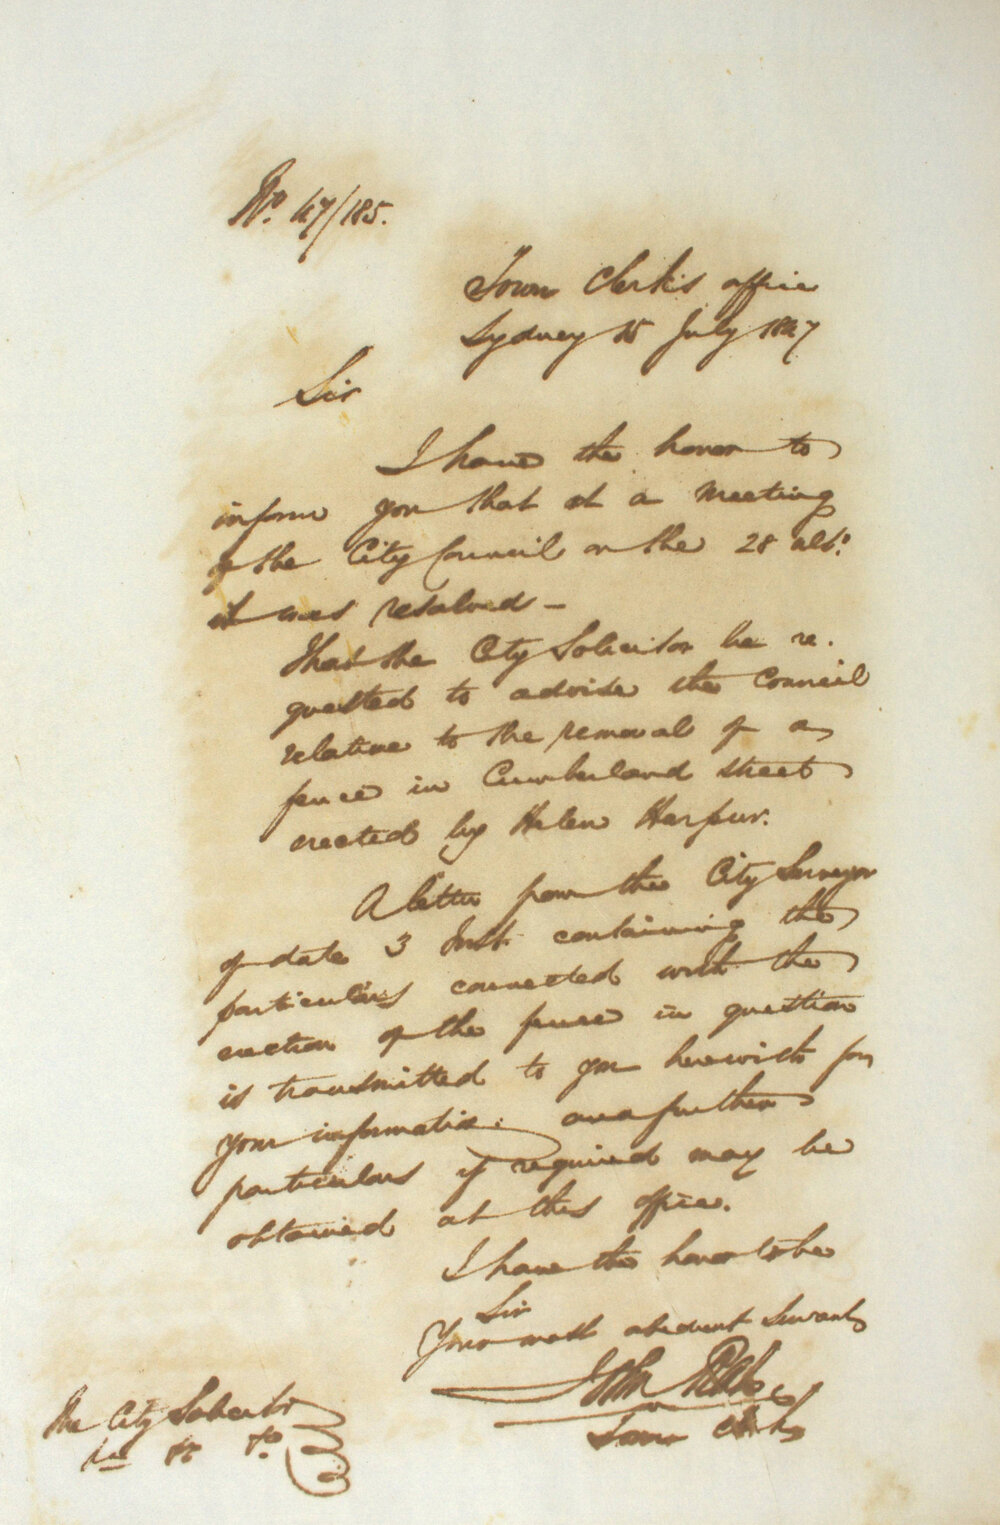 No. 47/185.
Town Clerk's office
Sydney 15 July 1847
Sir
I have the honor to
inform you that at a Meeting
of the City Council on the 28 ulto.
it was resolved –
That the City Solicitor be re.
quested to advise the Council
relative to the removal of a
fence in Cumberland street
erected by Helen Harpur.
A letter from the City Surveyor
of date 3 Inst. containing the
particulars connected with the
erection of the fence in question
is transmitted to you herewith for
your information: any further
particulars if required may be
obtained at this office.
I have the honor to be
Sir
Your most obedient Servant
John
Town Clerk
The City Solicitor